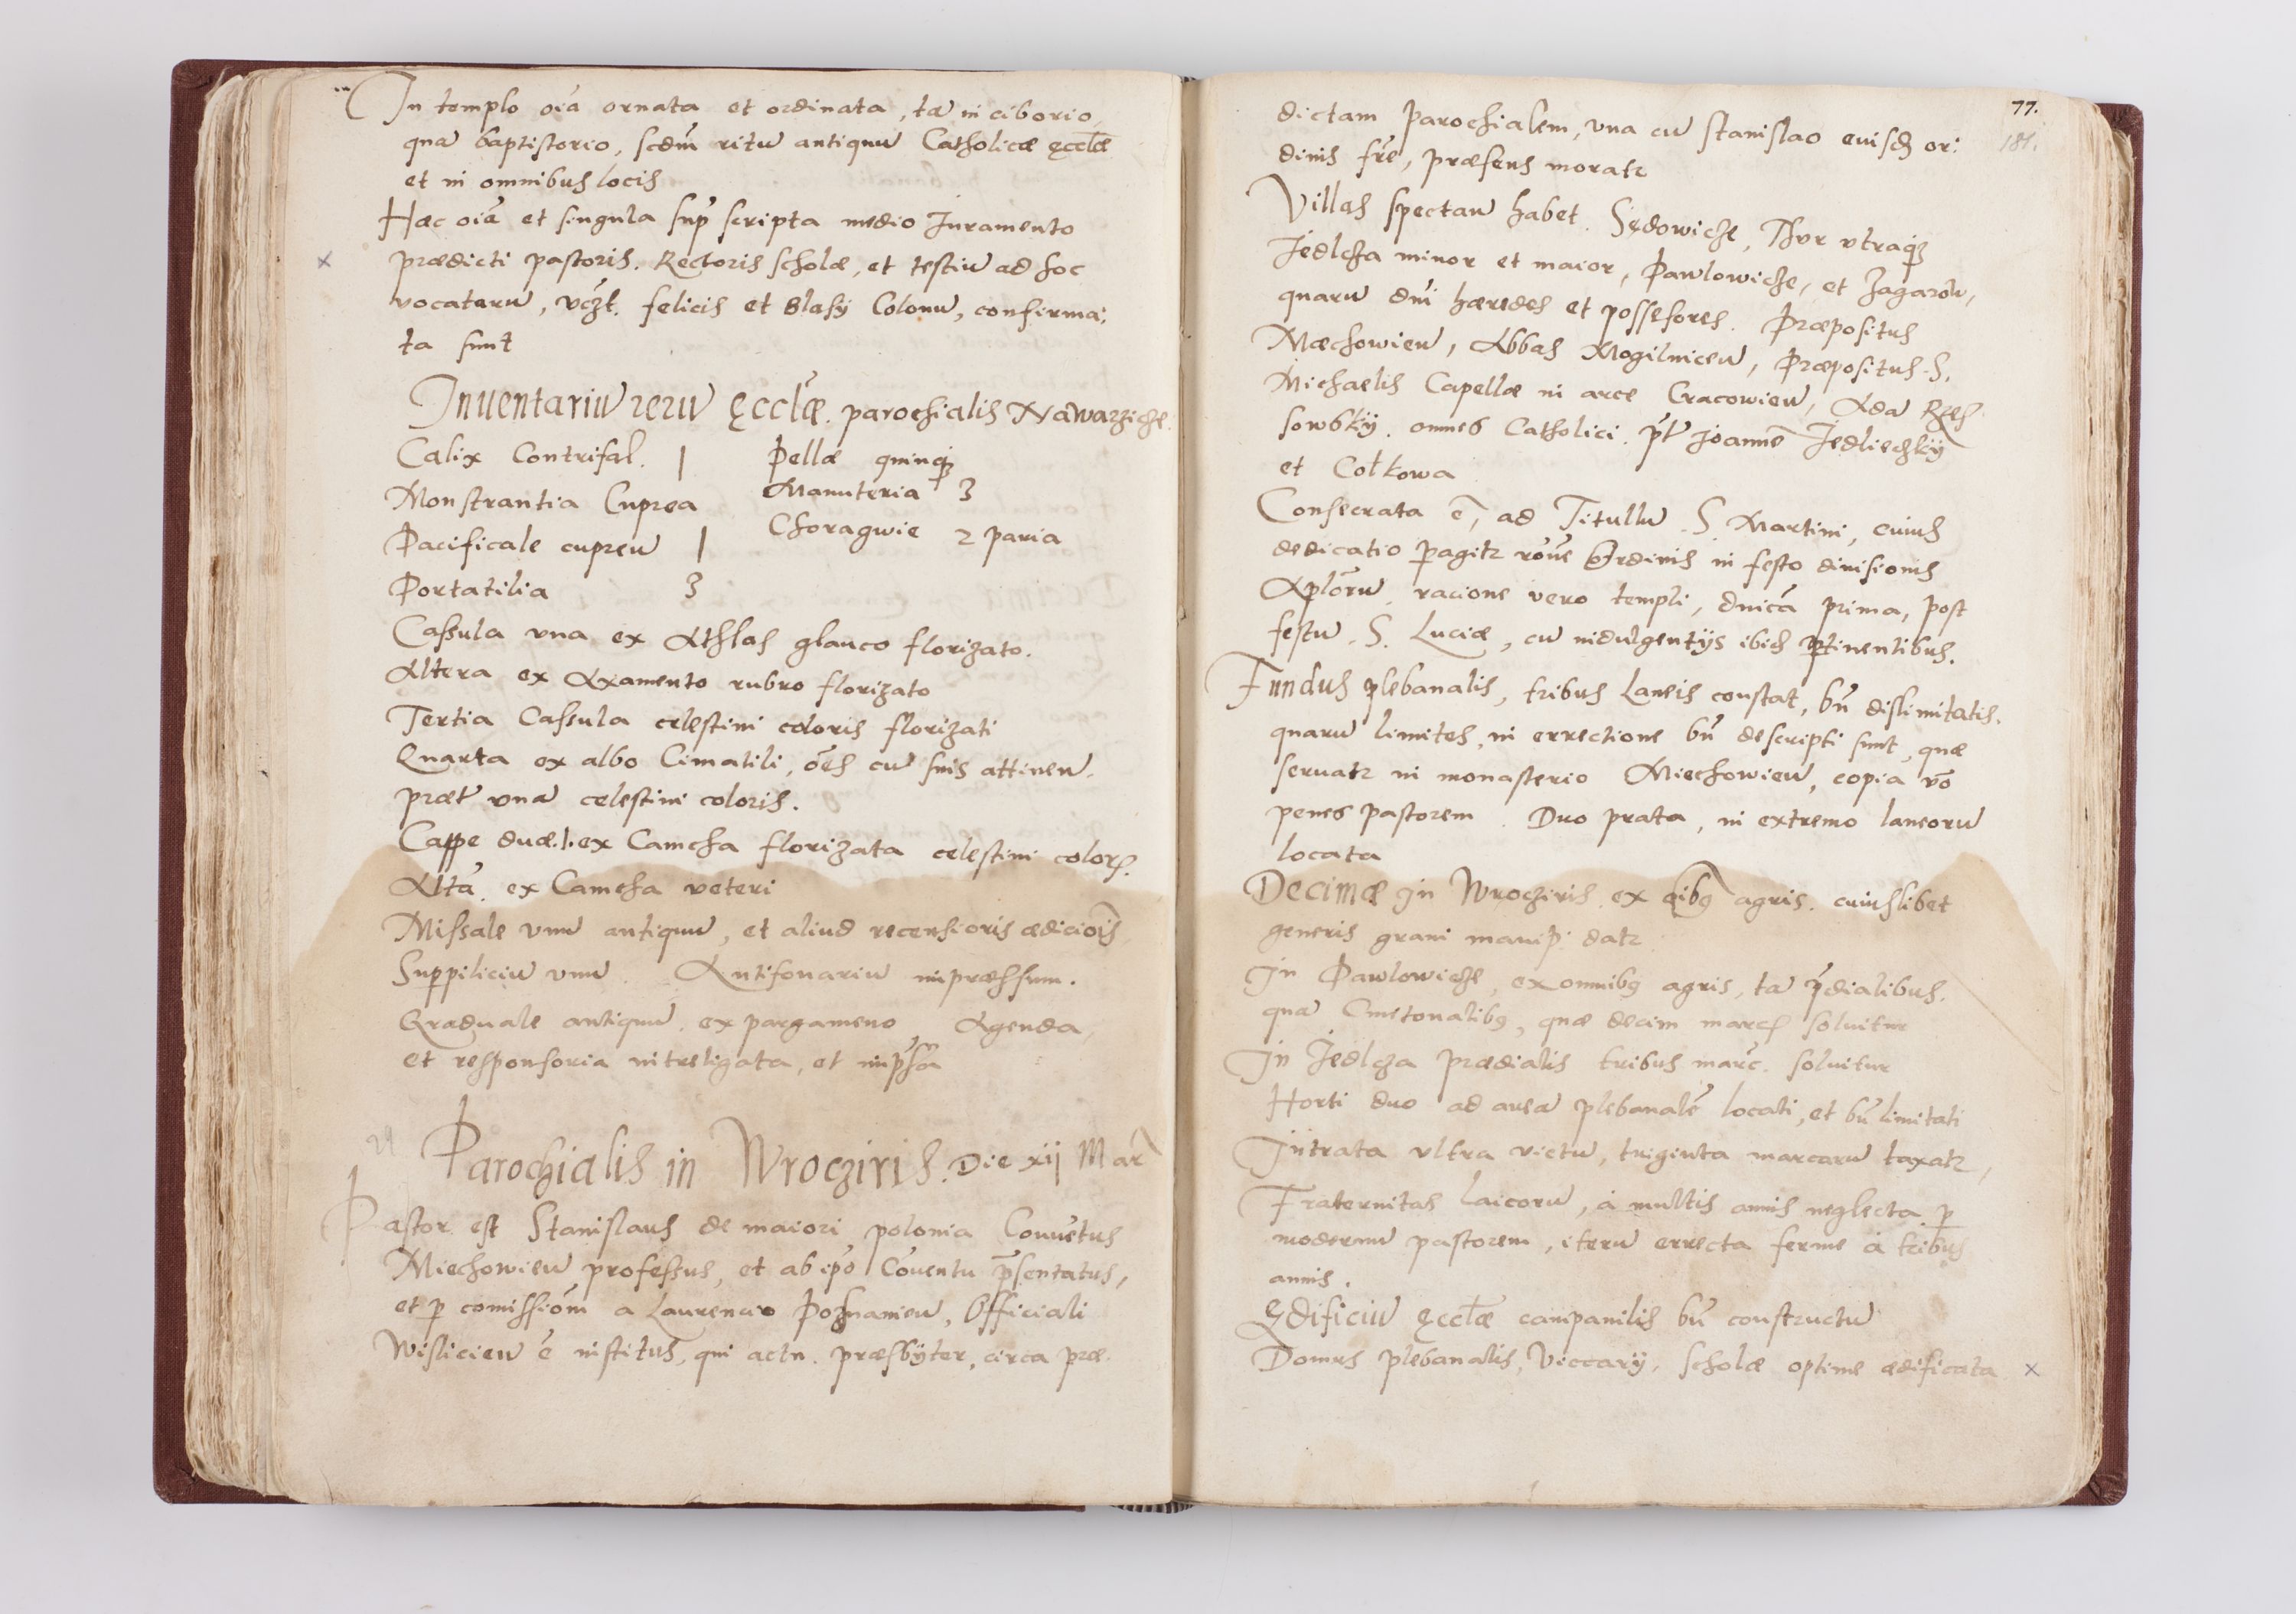 In templo oia͂ ornata et ordinata, ta͂ in ciborio,
qua͂ baptistorio, scdm̃ ritu͂ antiquu͂ Catholicæ ęccłæ
et in omnibus locis
Hæc oia͂ et singula sup͂ scripta medio Juramento
prædicti pastoris. Rectoris scholæ, et testiu͂ ad hoc
vocatoru͂, vczt. felicis et Blasÿ Colonu͂, confirma:
ta sunt
Inuentariu͂ reru͂ Ęccłæ. parochialis Nawarziche.
Calix Contrifal. 1 Pellæ quinqȝ
Monstrantia Cuprea Manuteria 3
Pacificale cupreu͂ 1 Choragwie 2 paria
Portatilia 3
Cassula vna ex Athlas glauco florizato.
Altera ex Axamento rubro florizato
Tertia Cassula celestini coloris florizati
Quarta ex albo Cimatili, o͂es cu͂ suis attinen͂.
præt͂ vna͂ celestini coloris.
Cappe duæ.1.ex Camcha florizata celestini coloꝝ.
Alta͂. ex Camcha veteri
Missale vnu͂ antiquu͂, et aliud recensioris ædicio͂is
Suppiliciu͂ vnu͂. Antifonariu͂ impræssum.
Graduale antiquu͂. ex pargameno, Agenda,
et responsoria intreligata, et imp͂sa͂
Parochialis in Wrocziris. Die xij Mar͂
Pastor est Stanislaus de maiori polonia Conue͂tus
Miechowien͂ professus, et ab ip͂o Co͂uentu p͂sentatus,
et ꝑ comissio͂m a Laurencio Poznanien͂, Officiali
Wislicien͂ e͂ institus, qui actu. præsbÿter, circa præ.
77.
181.
dictam Parochialem, vna cu͂ Stanislao euisdȝ or:
dinis fr͂e, præsens moratꝛ
Villas spectan͂ habet. Sędowiche, Thur vtraqȝ
Jedlcza minor et maior, Pawlowicze, et Zagaro͂w,
quaru͂ dn͂i hæredes et possesores. Præpositus
Mæchowien͂, Abbas Mogilnicen͂, Præpositus. S.
Michaelis Capellæ in arce Cracowien͂, Ada͂ Rzes
sowskÿ. omnes Catholici. p͂t Joanne͂ Jedlieczkÿ
et Cołkowa
Consecrata e͂, ad Titullu͂. S. Martini, cuius
dedicatio ꝑagitꝛ ro͂ne Ordinis in festo diuisionis
Aplo͂ru͂, racione vero templi, dnica͂ prima, post
festu͂. S. Luciæ, cu͂ indulgentÿs ibidȝ ꝑtinentibus.
Fundus plebanalis, tribus Laneis constat, bn͂ dislimitatis.
quaru͂ limites, in errectione bn͂ descripti sunt, quæ
seruatꝛ in monasterio Miechowien͂, copia vo͂
penes pastorem. Duo prata, in extremo laneoru͂
locata
Decimæ in Wrocziris. ex oib9 agris. cuiuslibet
generis grani manip: datꝛ
In Pawlowicze, ex omnib9 agris, ta͂ p͂dialibus.
qua͂ Cmetonalib9, quæ decim marcȝ soluitur
In Jedlcza prædialis tribus marc͂. soluitur
Horti duo ad area͂ plebanale͂ locati, et bn͂ limitati
Intrata vltra victu͂, triginta marcaru͂ taxatꝛ,
Fraternitas laicoru͂, à multis annis neglecta ꝑ
modernu͂ pastorem, iteru͂ errecta ferme à tribus
annis.
Ędificiu͂ ęccłæ campanilis bn͂ constructu͂
Domus plebanalis, Viccarÿ, scholæ optime ædificata